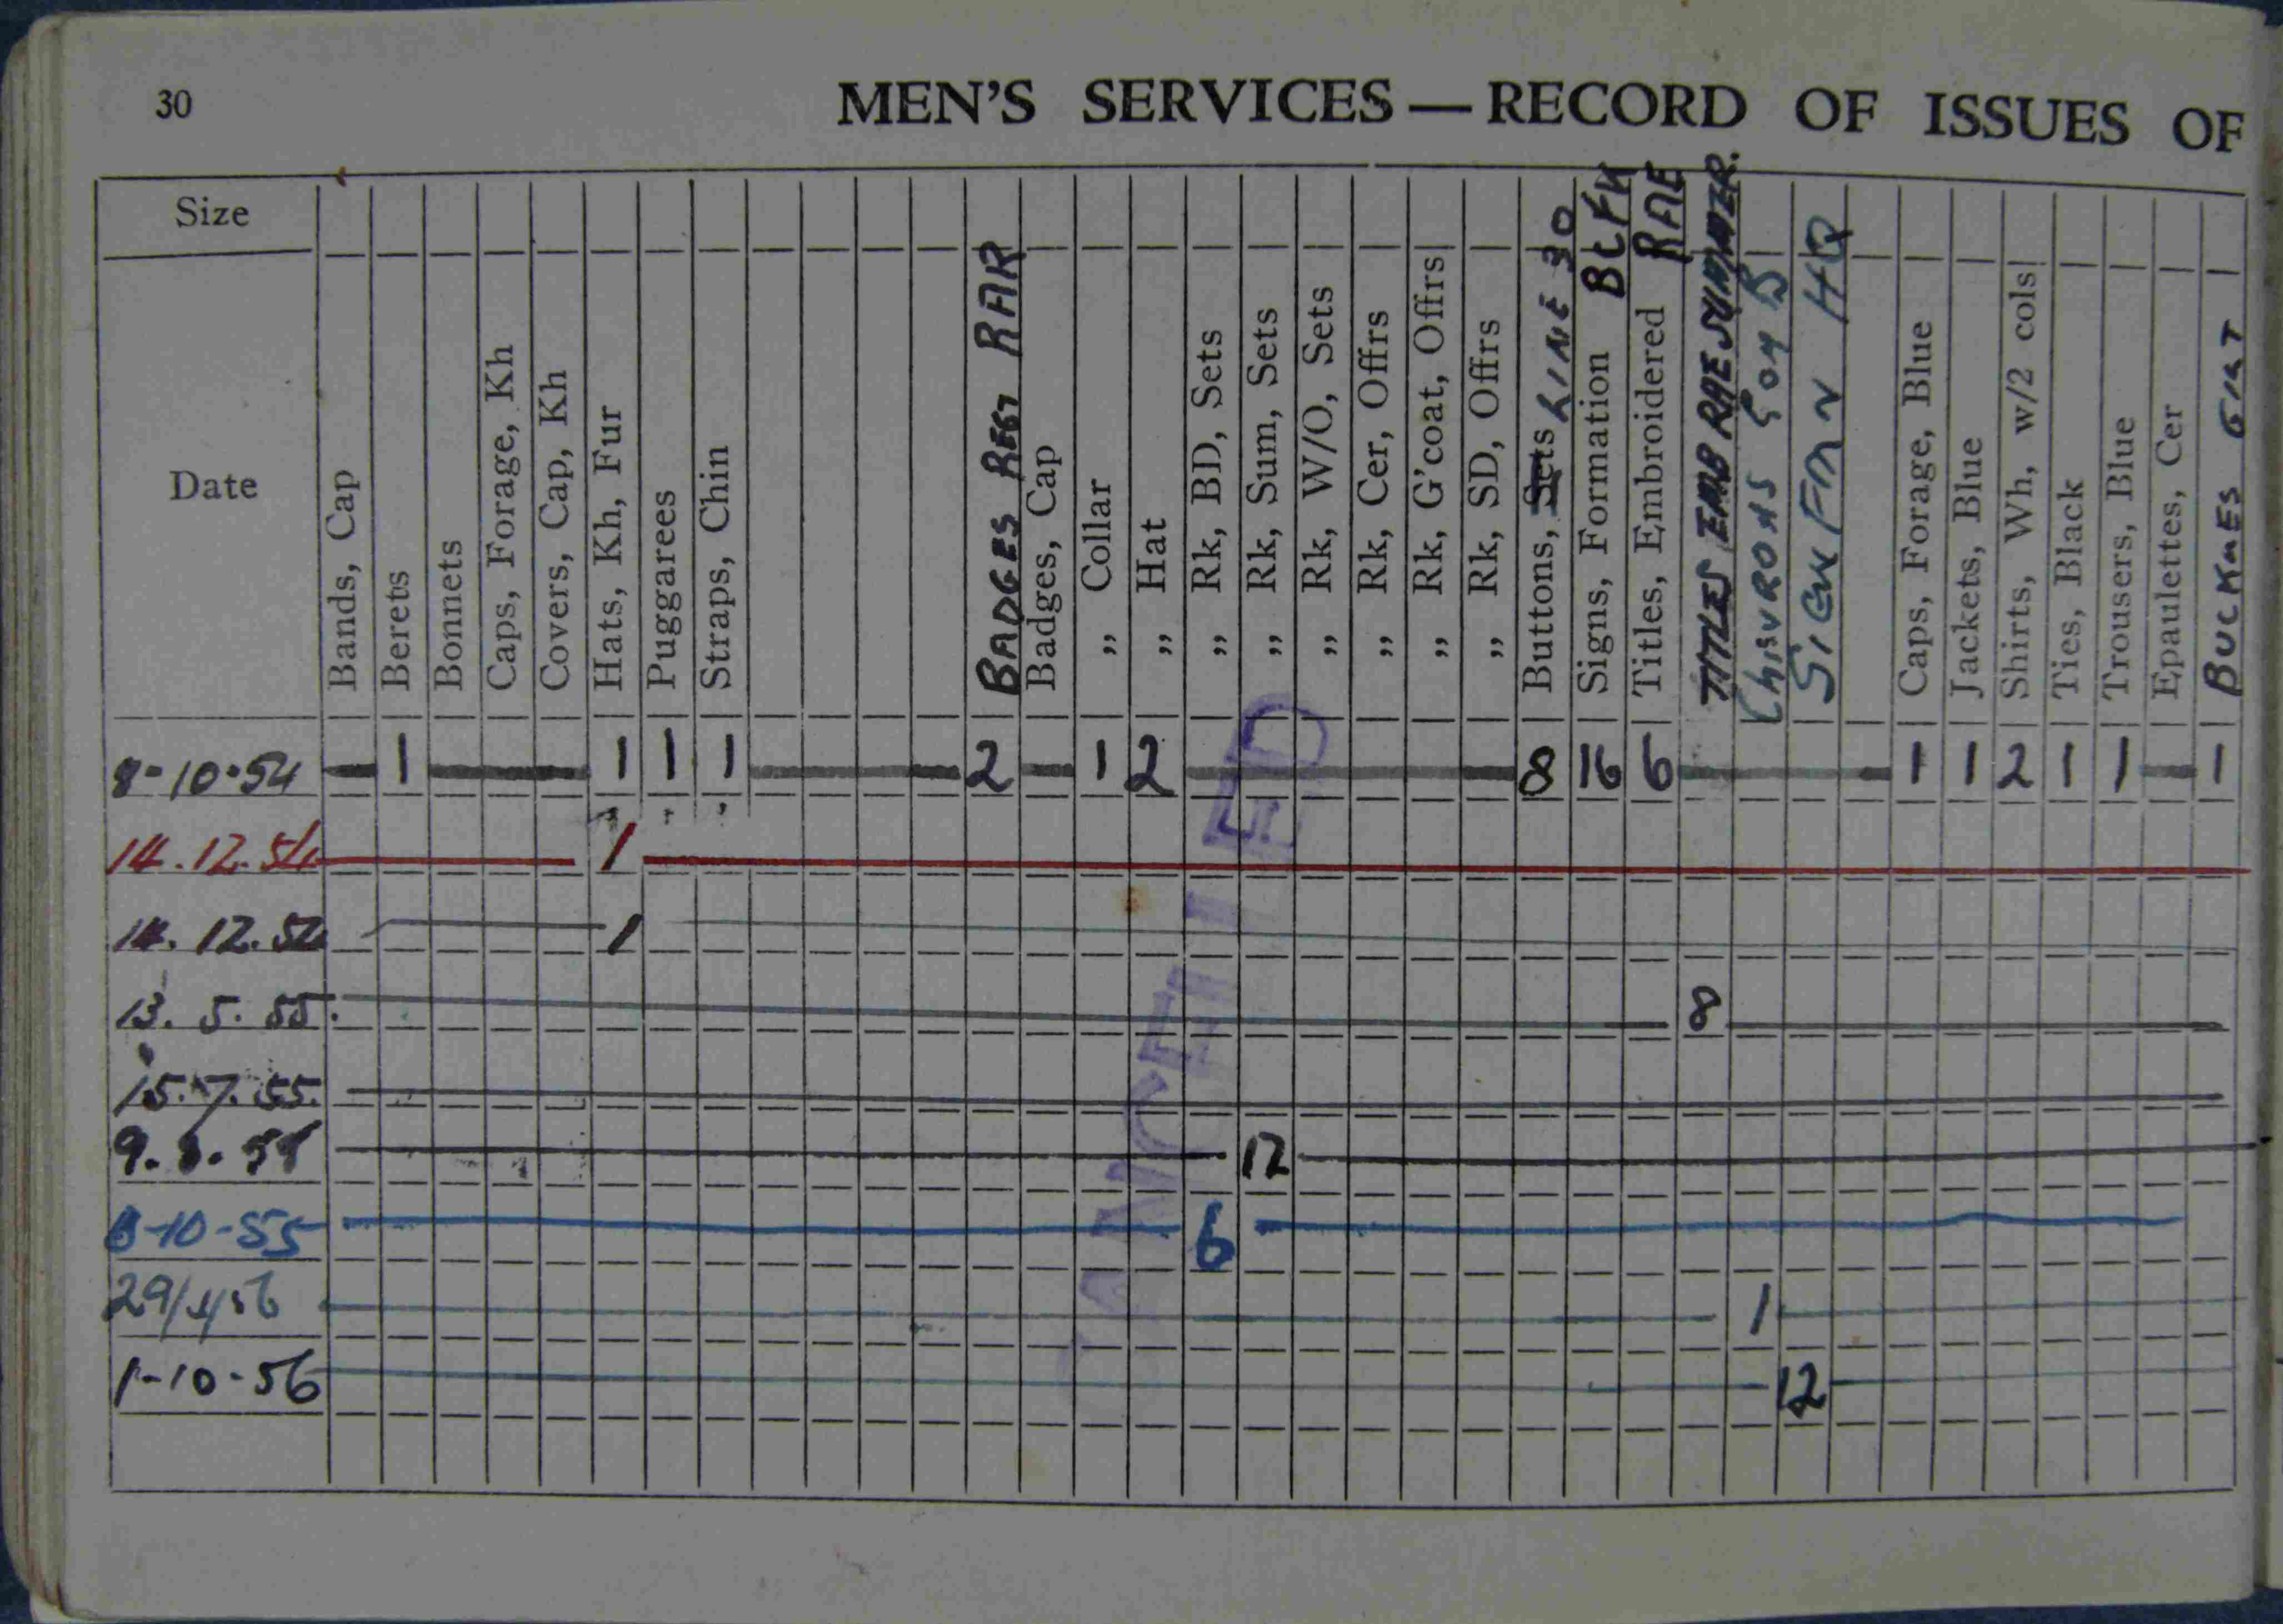 30
MEN'S SERVICES — RECORD OF ISSUES OF
Size
Date
Bands, Cap
Berets
Bonnets
Caps, Forage, Kh
Covers, Cap, Kh
Hats, Kh, Fur
Puggarees
Straps, Chin
BADGES REGT RAR
Badges, Cap
,, Collar
,, Hat
,, Rk, BD, Sets
,, Rk, Sum, Sets
,, Rk, W/O, Sets
,, Rk, Cer, Offrs
,, Rk, G'coat, Offrs
,, Rk, SD, Offrs
Buttons, Sets LINE 30
Signs, Formation
Titles, Embroidered RAE
TITLES EMB RAE SUMMER.
SIGN FMN HQ
Caps, Forage, Blue
Jackets, Blue
Shirts, Wh, w/2 cols
Ties, Black
Trousers, Blue
Epaulettes, Cer
BUCKLES
8-10-54 — 1 — 1 1 1 — 2 — 1 2 — 8 16 6 — 1 1 2 1 1 — 1
14.12.54 — 1 —
14.12.54 — 1 —
13.5.55. — 8 —
15.7.55. —
— 12 —
6-10-55 — 6 —
29/4/56 — 1 —
1-10-56 — 12 —
CANCELLED